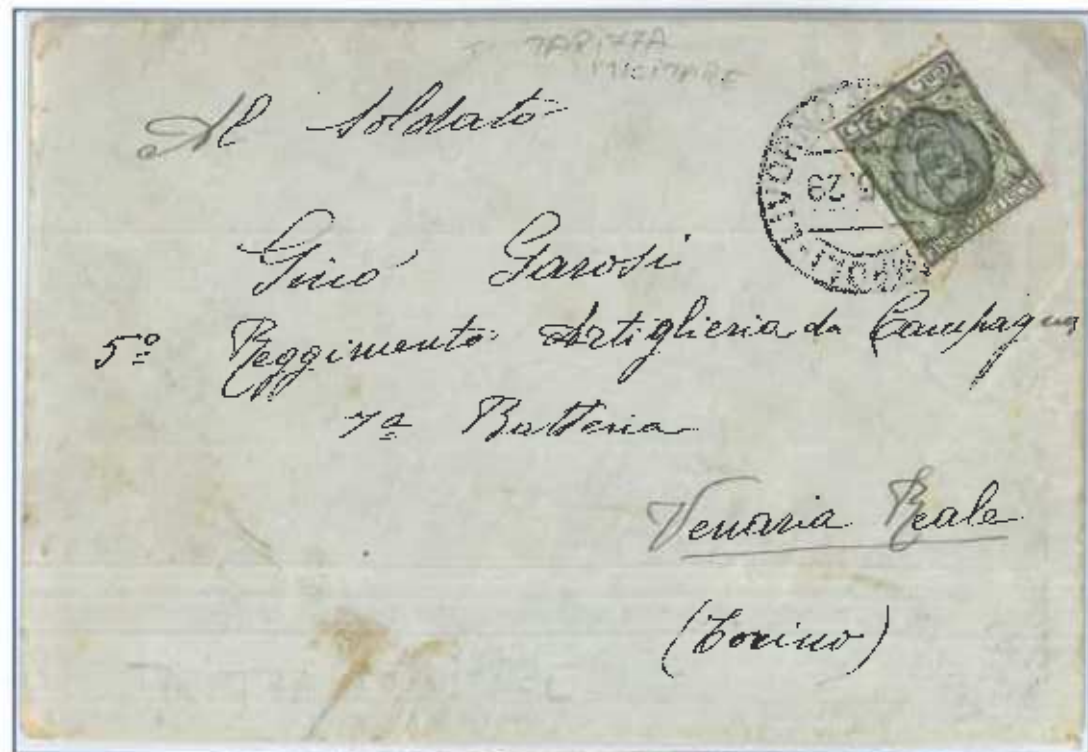 TARIFFA
MILITARE
Al Soldato
Gino Garosi
5º Reggimento Artiglieria da Campagna
7ª Batteria
Venaria Reale
(Torino)